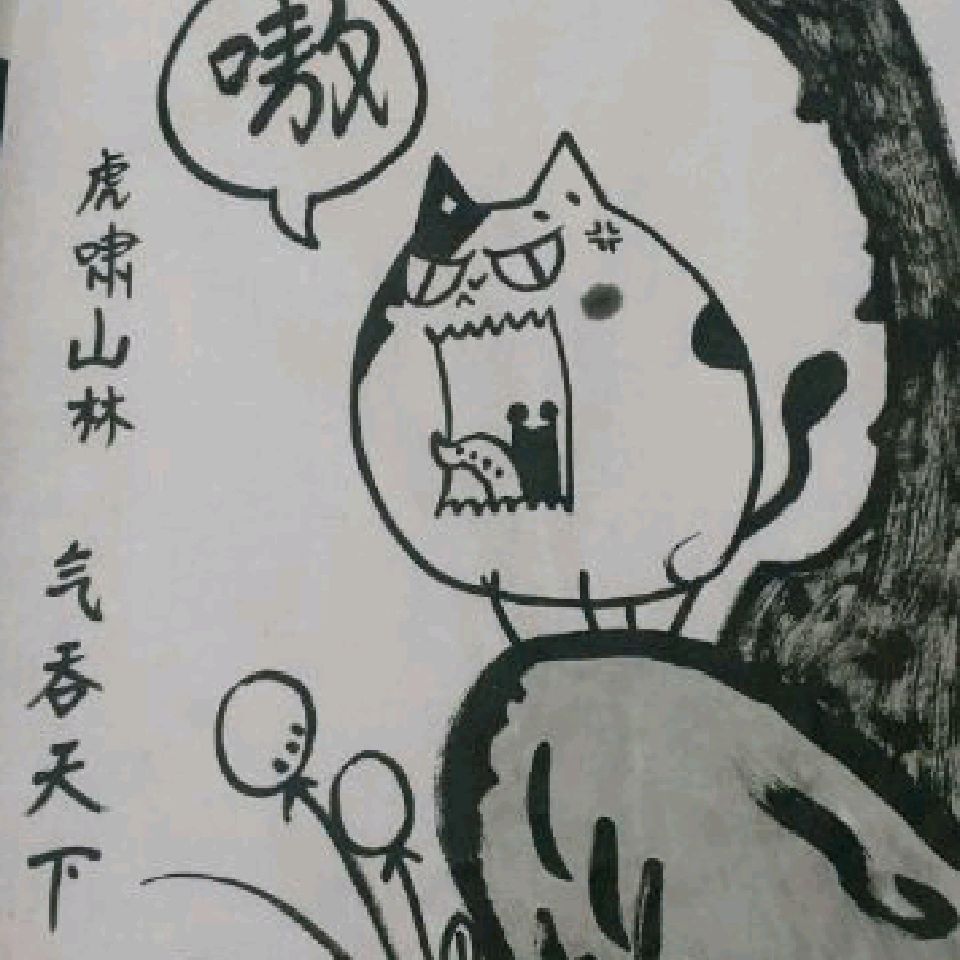 嗷
虎啸山林
气吞天下